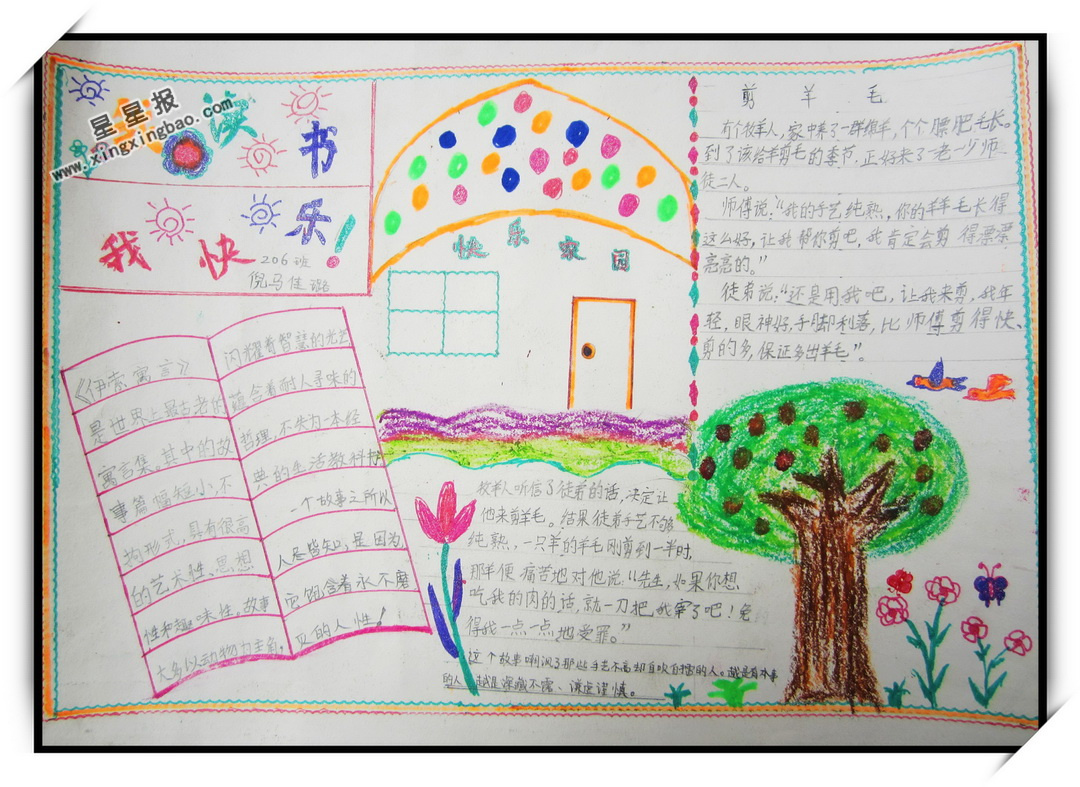 星星报
www.xingxingbao.com
读书
我快乐!
206班
倪马佳璐
《伊索寓言》
是世界上最古老的
寓言集。其中的故
事篇幅短小,不
拘形式,具有很高
的艺术性、思想
性和趣味性。故事
大多以动物为主角,
闪耀着智慧的光芒
蕴含着耐人寻味的
哲理,不失为一本经
典的生活教科书
一个故事之所以
人尽皆知,是因为,
它饱含着永不磨
灭的人性!
快乐家园
剪羊毛
有个牧羊人,家中养了一群绵羊,个个膘肥毛长。
到了该给羊剪毛的季节,正好来了一老一少师
徒二人。
师傅说:“我的手艺纯熟,你的羊羊毛长得
这么好,让我帮你剪吧,我肯定会剪得漂漂
亮亮的。”
徒弟说:“还是用我吧,让我来剪,我年
轻,眼神好,手脚利落,比师傅剪得快、
剪的多,保证多出羊毛”。
牧羊人听信了徒弟的话,决定让
他来剪羊毛。结果徒弟手艺不够
纯熟,一只羊的羊毛刚剪到一半时,
那羊便痛苦地对他说:“先生,如果你想
吃我的肉的话,就一刀把我宰了吧!免
得我一点一点地受罪。”
这个故事嘲讽了那些手艺不高却自吹自擂的人。越是有本事
的人,越是深藏不露、谦虚谨慎。